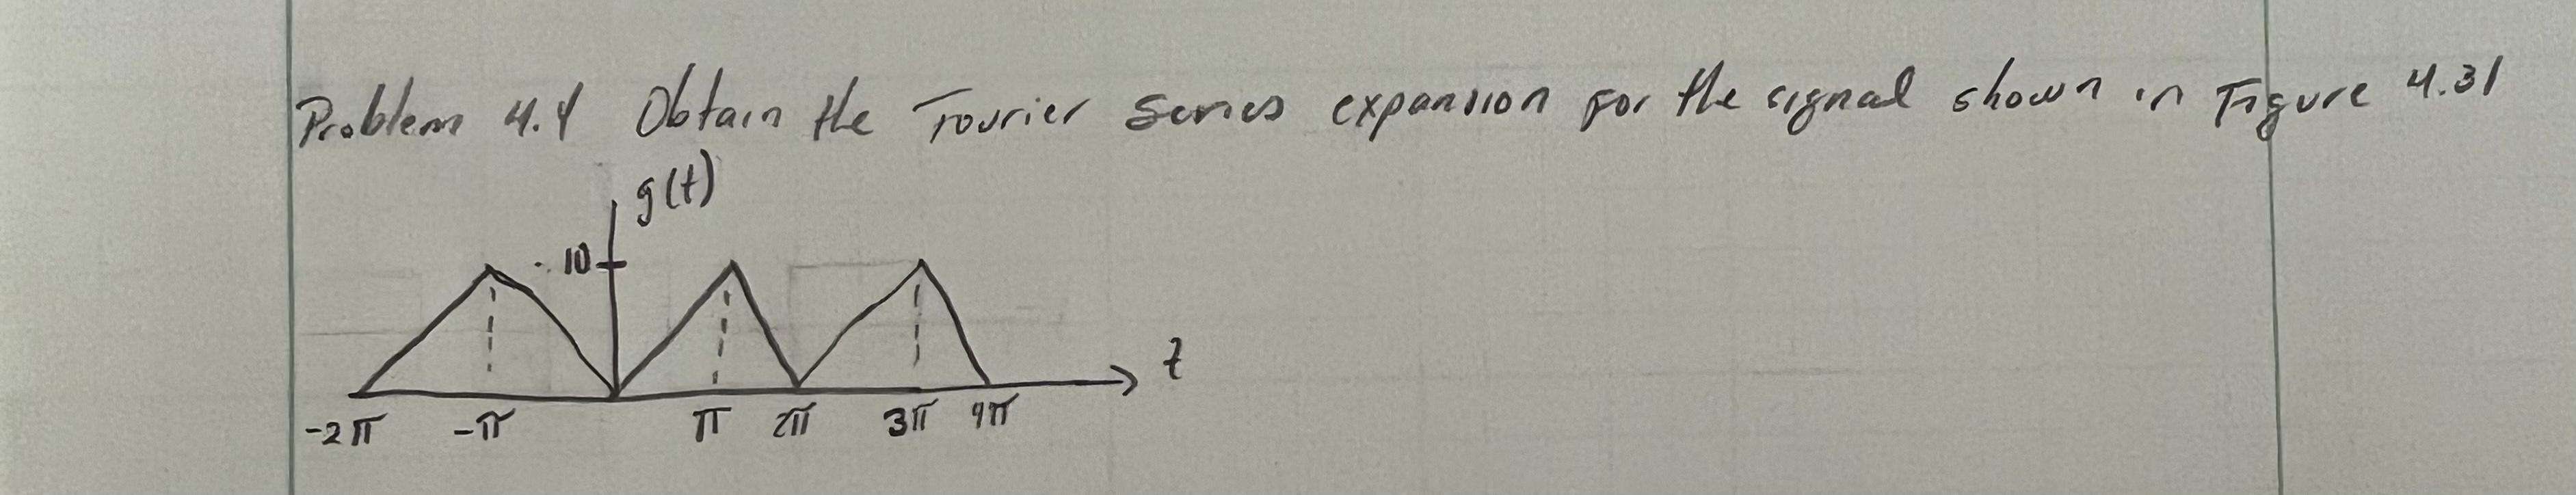 Problem 4.4 Obtain the Fourier Series expansion for the signal shown in Figure 4.31
g(t)
10
t
-2π -π π 2π 3π 4π